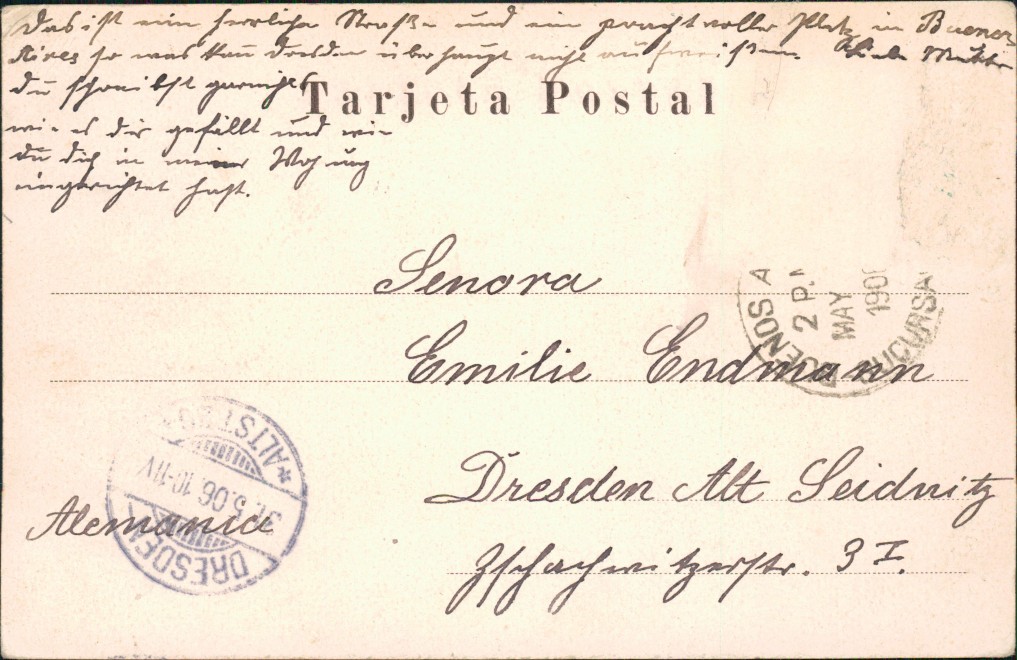 Das ist ein herrliche Straße und ein prachtvoller Platz in Buenos
Aires so was kan Dresden überhaupt nicht aufweißen. Liebe Mutter
du schreibst garnichts
wie es dir gefällt und wie
du dich in meiner Wohung
eingerichtet hast.
Tarjeta Postal
Senora
Emilie Endmann
Dresden Alt Seidnitz
Zschachwitzerstr. 3 I.
Alemania
BUENOS A
2 P.M
MAY
190
SUCURSA
DRESDEN
31.5.06. 10-11V
*ALTST.